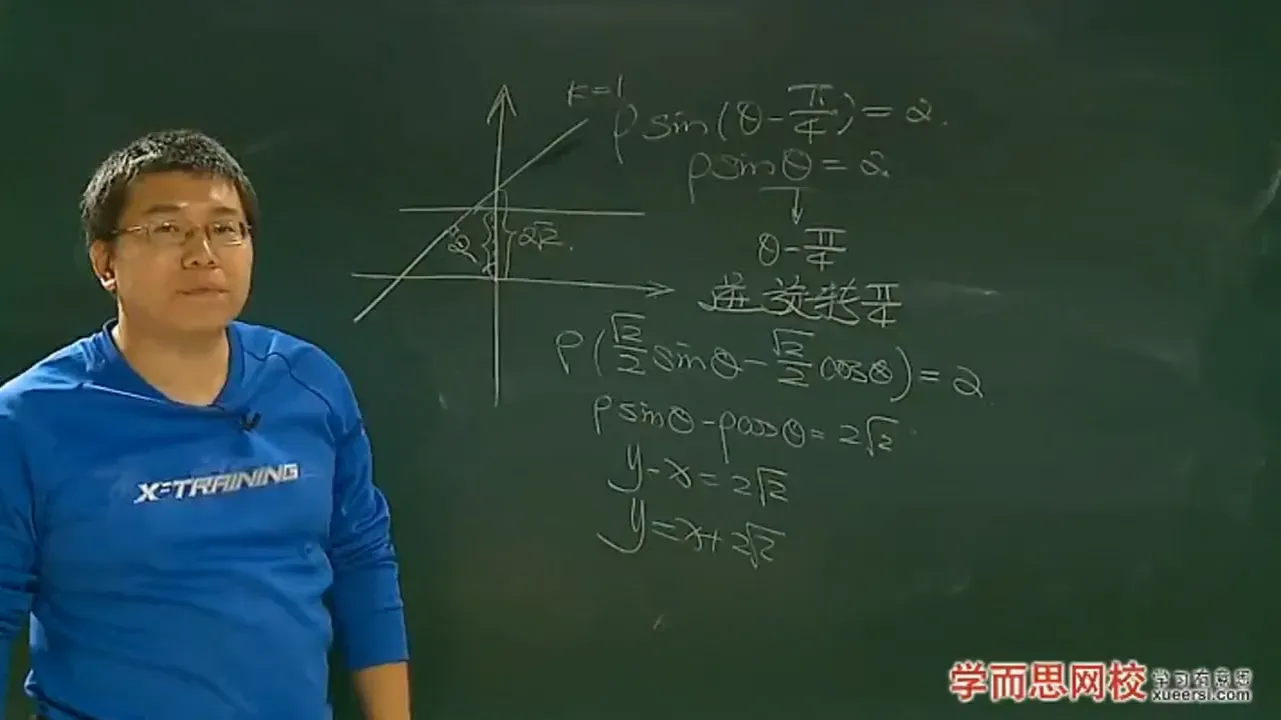 k=1
ρsin(θ-π/4)=2.
ρsinθ=2.
θ-π/4
逆旋转π/4
2
2√2.
ρ(√2/2 sinθ-√2/2 cosθ)=2
ρsinθ-ρcosθ=2√2
y-x=2√2
y=x+2√2
X-TRAINING
学而思网校
学习有意思
xueersi.com